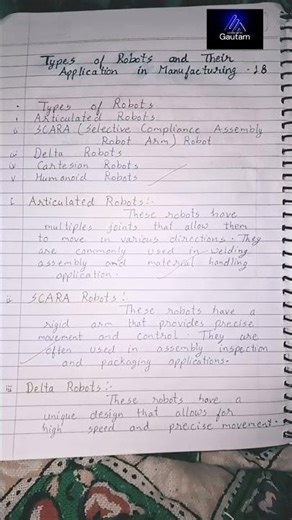 Gautam
Types of Robots and Their
Application in Manufacturing - 18
• Types of Robots
i Articulated Robots
ii SCARA (Selective Compliance Assembly
Robot Arm) Robot
iii Delta Robots
iv Cartesion Robots
v Humanoid Robots
i. Articulated Robots:-
These robots have
multiples joints that allow them
to move in various directions. They
are commonly used in welding
assembly and material handling
application.
ii SCARA Robots:-
These robots have a
rigid arm that provides precise
movement and control. They are
often used in assembly inspection
and packaging applications.
iii Delta Robots:-
These robots have a
unique design that allows for
high speed and precise movement.